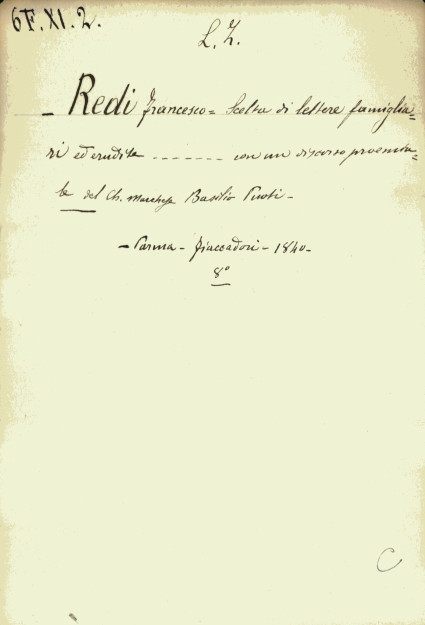 6F.XI.2.
L. Z.
- Redi Francesco = Scelta di lettere famiglia=
ri ed erudite - - - - - - - con un discorso proemia=
le del Ch. Marchese Basilio Puoti -
- Parma - Fiaccadori - 1840 -
8°
C